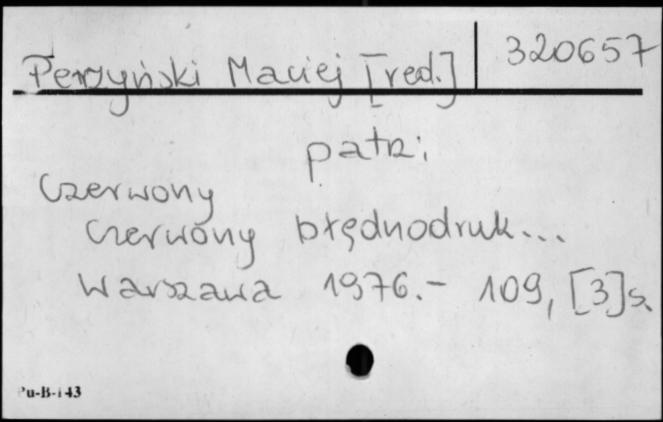 Perzyński Maciej [red.] 320657
patrz:
Czerwony
Czerwony błędnodruk...
Warszawa 1976.- 109, [3]s.
Pu-B-143